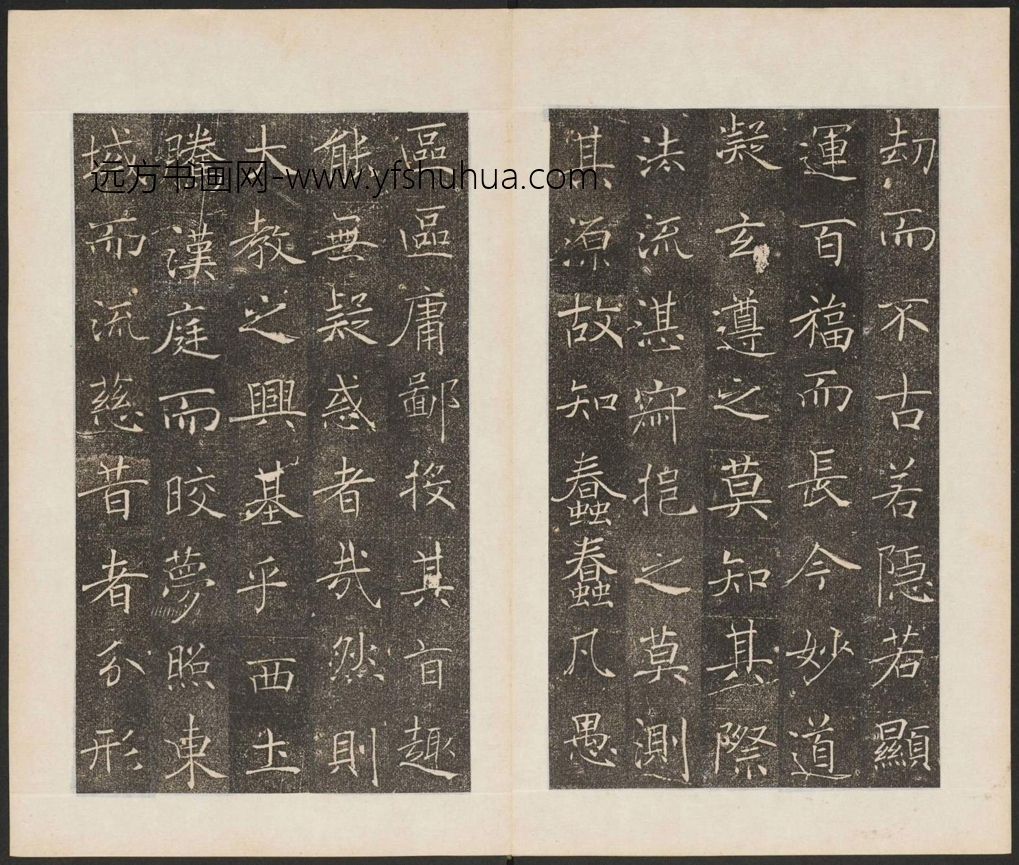 劫而不古若隱若顯
運百福而長今妙道
凝玄遵之莫知其際
法流湛寂挹之莫測
其源故知蠢蠢凡愚
區區庸鄙投其旨趣
能無疑惑者哉然則
大教之興基乎西土
騰漢庭而皎夢照東
域而流慈昔者分形
远方书画网-www.yfshuhua.com